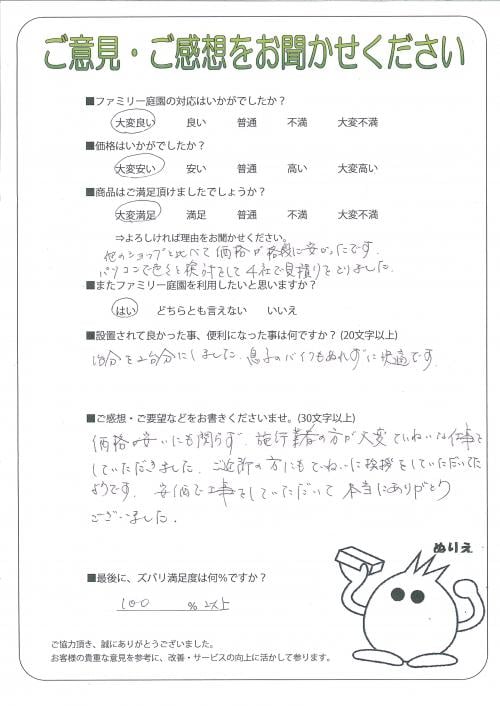 ご意見・ご感想をお聞かせください
■ファミリー庭園の対応はいかがでしたか？
大変良い 良い 普通 不満 大変不満
■価格はいかがでしたか？
大変安い 安い 普通 高い 大変高い
■商品はご満足頂けましたでしょうか？
大変満足 満足 普通 不満 大変不満
⇒よろしければ理由をお聞かせください。
他のショップと比べて価格が格段に安かったです。
パソコンで色々と検討をして4社で見積りをとりました。
■またファミリー庭園を利用したいと思いますか？
はい どちらとも言えない いいえ
■設置されて良かった事、便利になった事は何ですか？(20文字以上)
1台分を2台分にしました。息子のバイクもぬれずに快適です。
■ご感想・ご要望などをお書きくださいませ。(30文字以上)
価格が安いにも関らず、施行業者の方が大変ていねいな仕事を
していただきました。ご近所の方にもていねいに挨拶をしていただいてた
ようです。安価で工事をしていただいて本当にありがとう
ございました。
ぬりえ
■最後に、ズバリ満足度は何％ですか？
100 ％以上
ご協力頂き、誠にありがとうございました。
お客様の貴重な意見を参考に、改善・サービスの向上に活かして参ります。